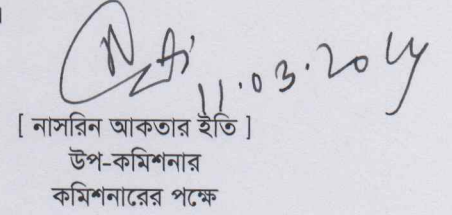 11.03.2014
[ নাসরিন আকতার ইতি ]
উপ-কমিশনার
কমিশনারের পক্ষে